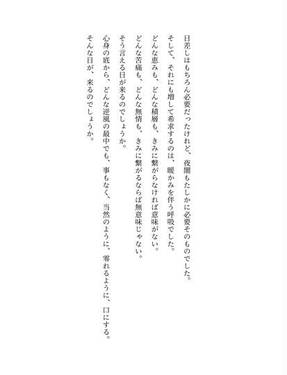 日差しはもちろん必要だったけれど、夜闇もたしかに必要そのものでした。
そして、それにも増して希求するのは、暖かみを伴う呼吸でした。
どんな恵みも、どんな積層も、きみに繋がらなければ意味がない。
どんな苦痛も、どんな無情も、きみに繋がるならば無意味じゃない。
そう言える日が来るのでしょうか。
心身の底から、どんな逆風の最中でも、事もなく、当然のように、零れるように、口にする。
そんな日が、来るのでしょうか。